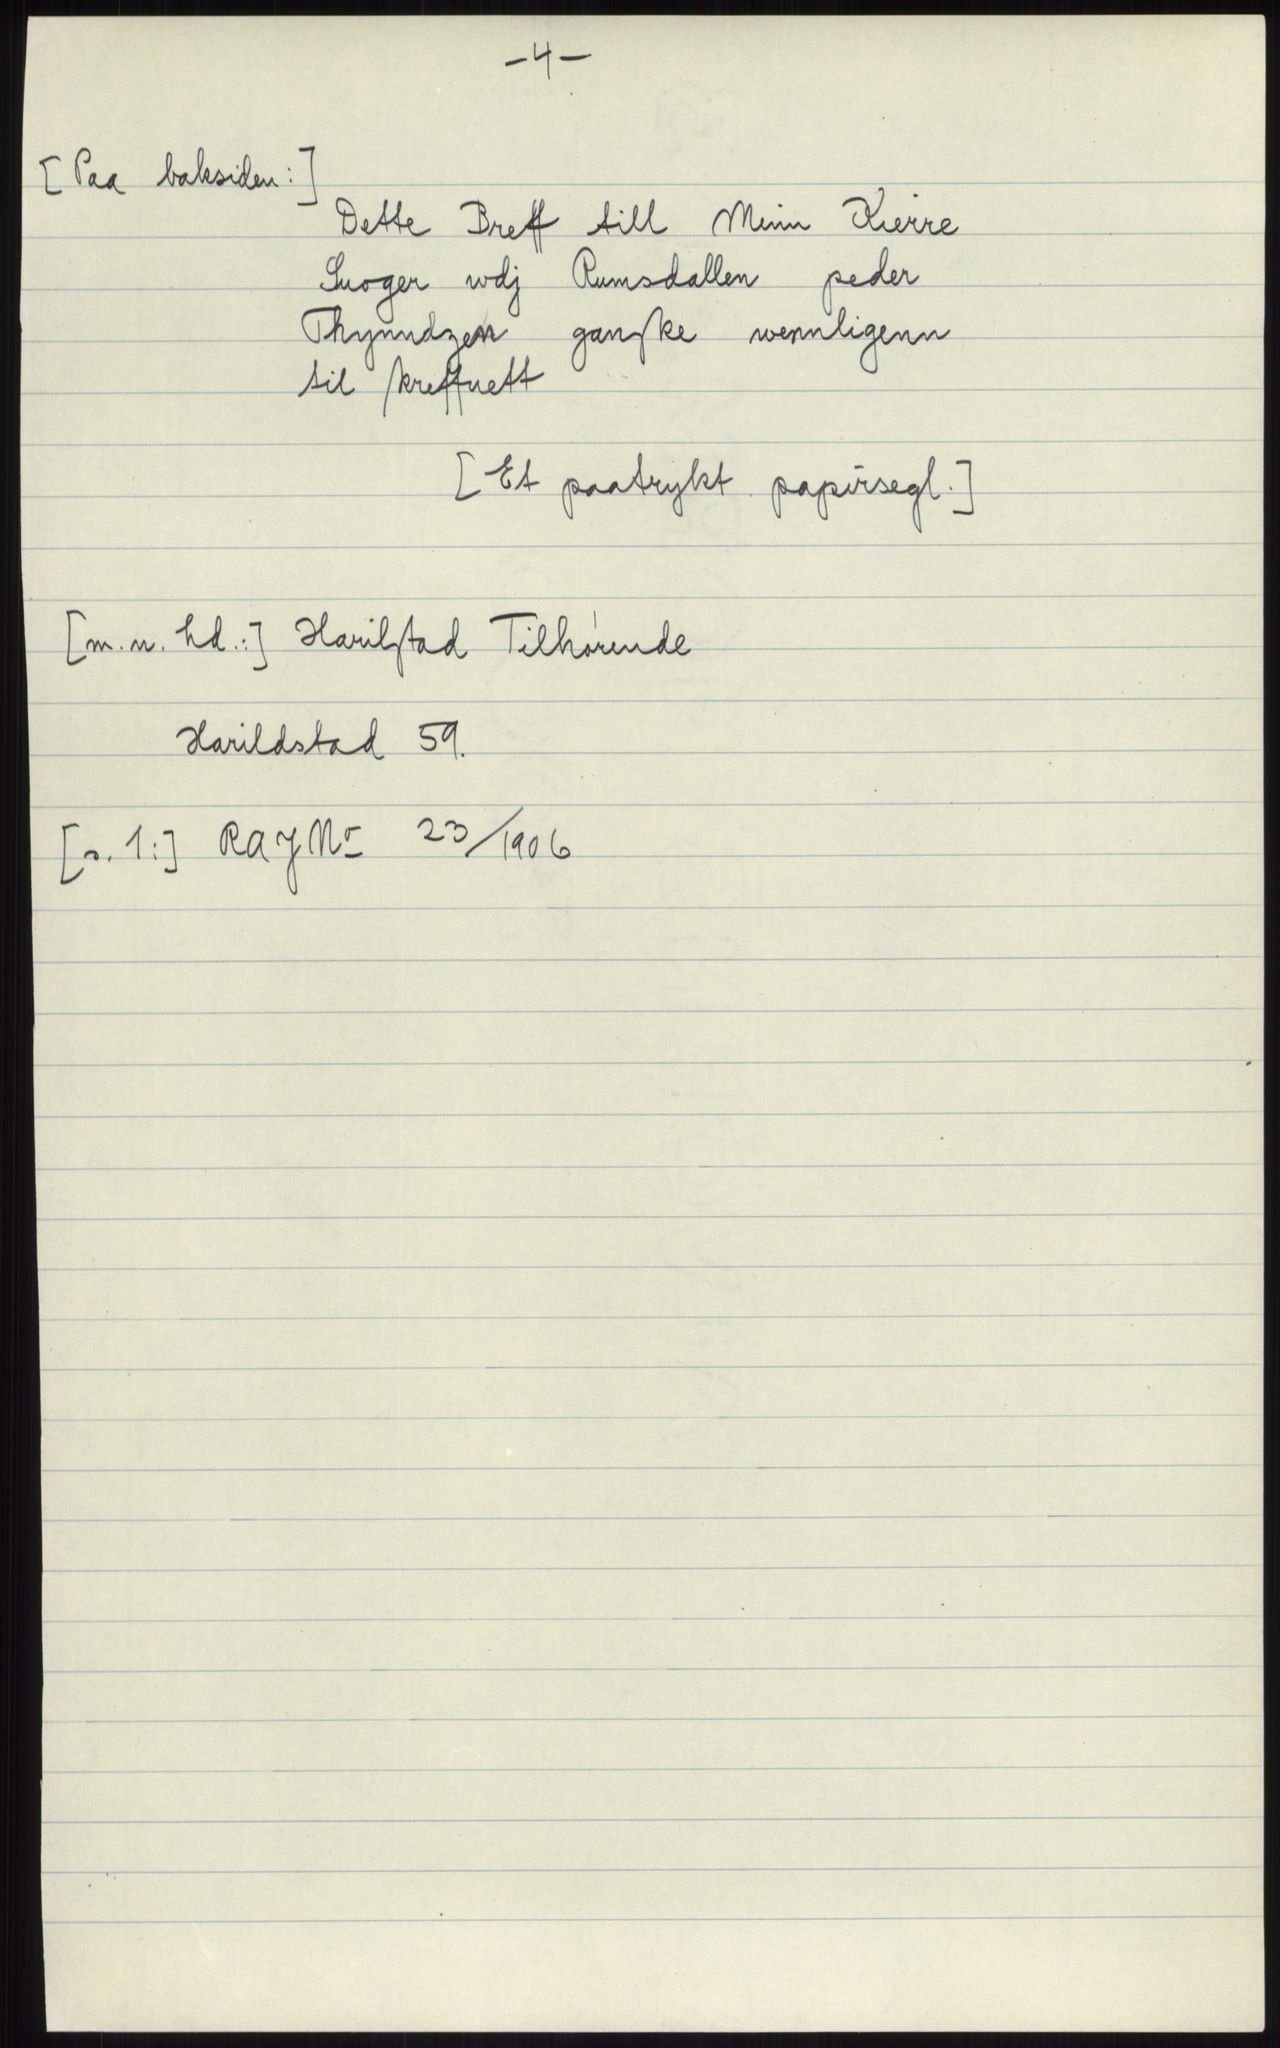 -4-
[Paa baksiden:]
Dette Breff till Minn Kierre
Suoger wdj Rumsdallen peder
Thynndzen ganſke wennligenn
til ſkreffuett
[Et paatrykt papirsegl.]
[m. n. hd.:] Harilſtad Tilhørende
Harildstad 59.
[s. 1:] RA J Nr 23/1906